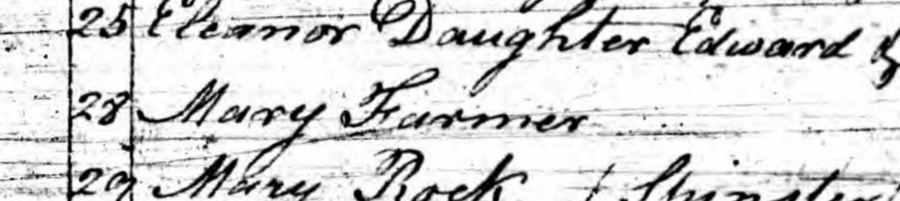 25 Eleanor Daughter Edward &
28 Mary Farmer
29 Mary Rock / Spinster